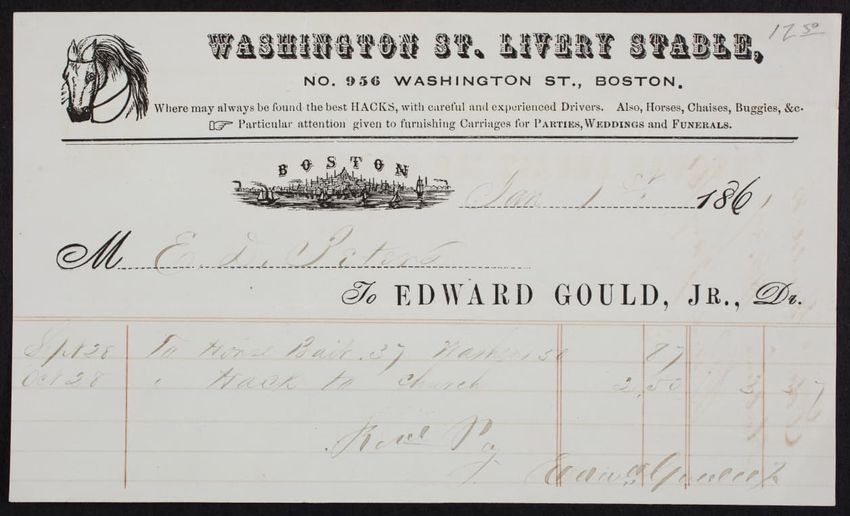 17 50
WASHINGTON ST. LIVERY STABLE,
NO. 956 WASHINGTON ST., BOSTON.
Where may always be found the best HACKS, with careful and experienced Drivers. Also, Horses, Chaises, Buggies, &c.
☞ Particular attention given to furnishing Carriages for PARTIES, WEDDINGS and FUNERALS.
BOSTON
Jan 1st 1861
M E. D. Peters
To EDWARD GOULD, JR., Dr.
Sept 28 To Horse Bait. 37 50 87
Oct 28 " Hack to Church 2.50 3 37
Recd Py
Edward Gould Jr